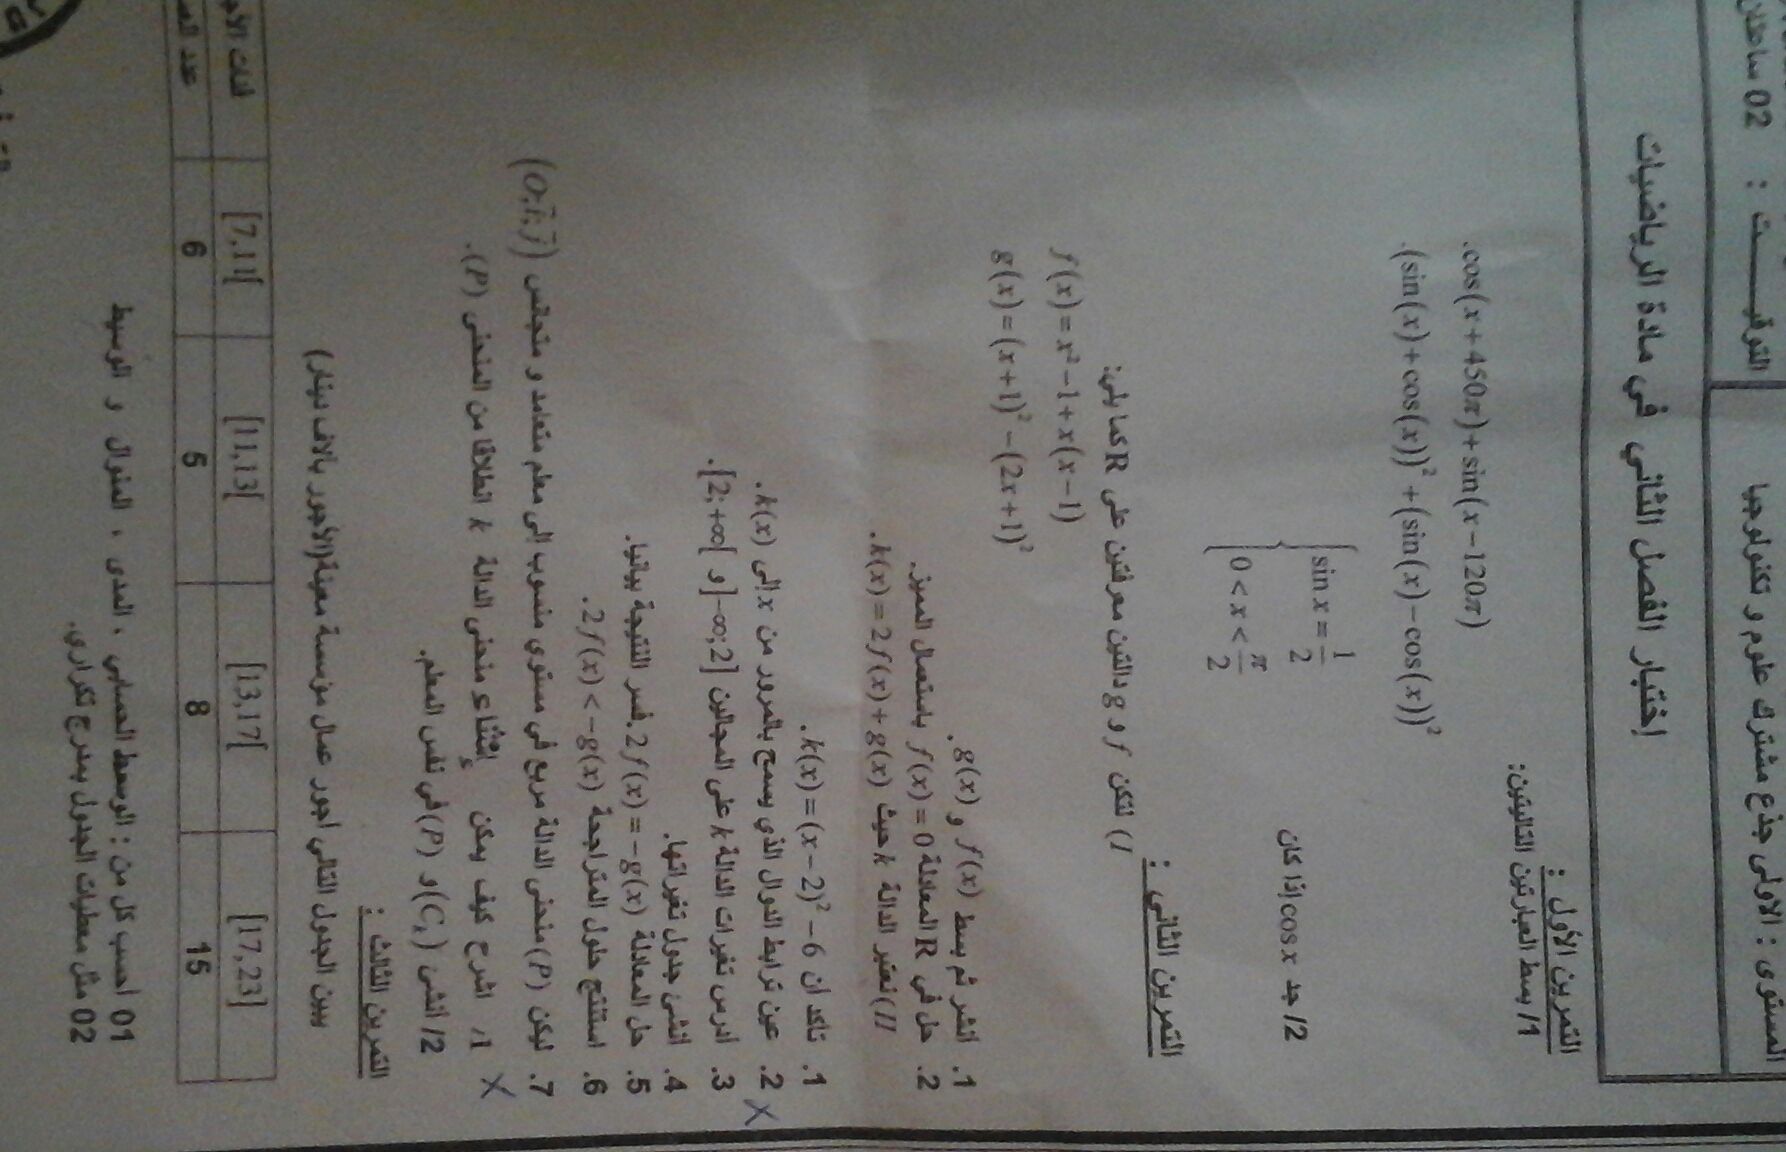 المستوى : الاولى جذع مشترك علوم و تكنولوجيا
التوقيـــــــت : 02
إختبار الفصل الثاني في مادة الرياضيات
التمرين الأول :
1/ بسط العبارتين التاليتين:
.cos(x+450π)+sin(x−120π)
.(sin(x)+cos(x))²+(sin(x)−cos(x))²
2/ جد cos x إذا كان
{ sin x = 1/2
0 < x < π/2
التمرين الثاني :
I) لتكن f و g دالتين معرفتين على R كما يلي:
f(x)=x²−1+x(x−1)
g(x)=(x+1)²−(2x+1)²
1. انشر ثم بسط f(x) و g(x) .
2. حل في R المعادلة f(x)=0 باستعمال المميز.
II) نعتبر الدالة k حيث k(x)=2f(x)+g(x).
1. تأكد أن k(x)=(x−2)²−6.
2. عين ترابط الدوال الذي يسمح بالمرور من x إلى k(x).
3. أدرس تغيرات الدالة k على المجالين ]−∞;2] و [2;+∞[.
4. انشئ جدول تغيراتها.
5. حل المعادلة 2f(x)=−g(x).فسر النتيجة بيانيا.
6. استنتج حلول المتراجحة 2f(x)<−g(x).
7. ليكن (P) منحنى الدالة مربع في مستوي منسوب الى معلم متعامد و متجانس (O;i⃗;j⃗)
1/ اشرح كيف يمكن إنشاء منحنى الدالة k انطلاقا من المنحنى (P).
2/ انشئ (Cₖ) و (P) في نفس المعلم.
التمرين الثالث :
يبين الجدول التالي اجور عمال مؤسسة معينة(الأجور بآلاف دينار)
فئات [7,11[ [11,13[ [13,17[ [17,23]
عدد 6 5 8 15
01 أحسب كل من : الوسط الحسابي ، المدى ، المنوال و الوسيط
02 مثل معطيات الجدول بمدرج تكراري.